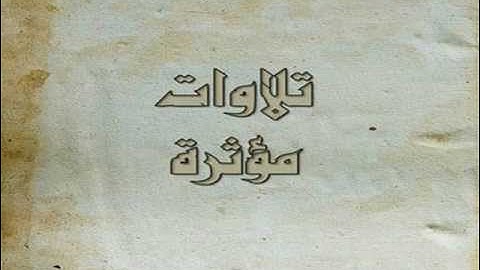 تلاوات
مؤثرة